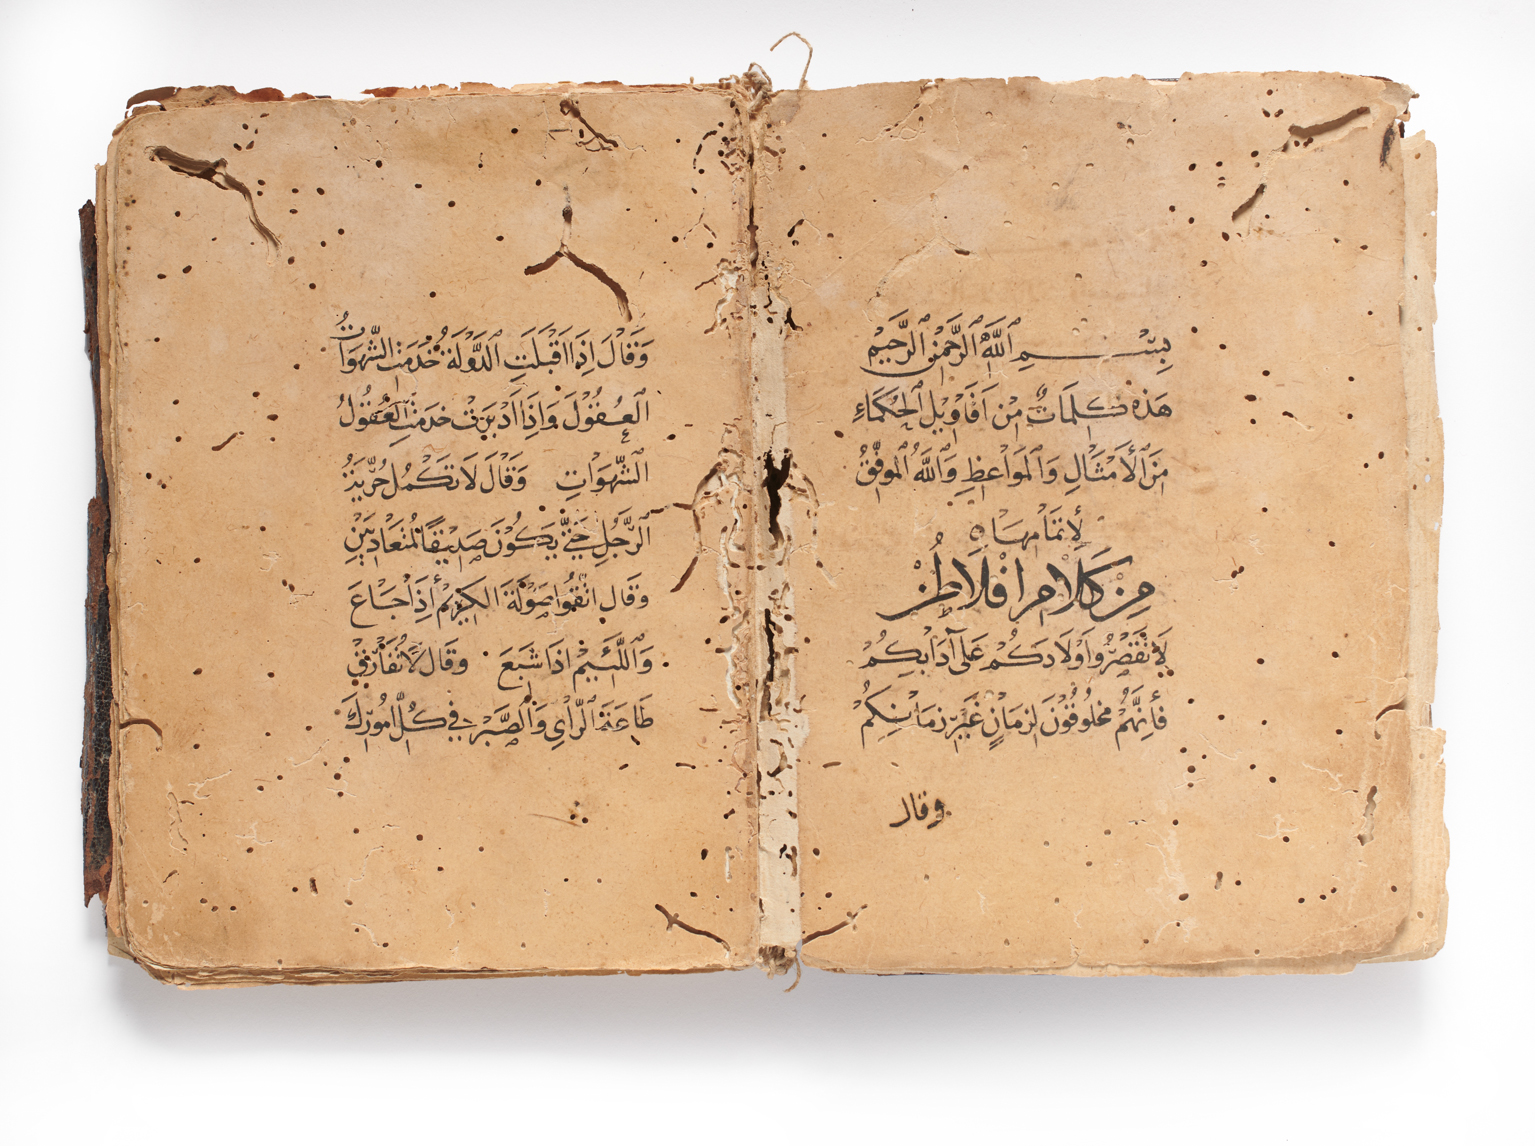 بِسْمِ ٱللَّهِ ٱلرَّحْمٰنِ ٱلرَّحِيْمِ
هَذِهْ كَلِمَاتٌ مِنْ اَقَاوِيْلِ ٱلحُكَمَاءِ
مِنَ ٱلأَمْثَالِ وَٱلمَوَاعِظِ وَٱللَّهُ ٱلموَفِّقُ
لِإتمَامِهَا
مِنْ كَلَامِ افْلَاطُنْ
لَا تَقْصُرُوا اَوْلَادَكُمْ عَلَى آدَابِكِمُ
فَأِنَّهُمْ مخلُوقُوْنَ لِزمَانٍ غَيْرِ زمَانِكُمْ
وقال
وَقَالَ اِذَا اقْبَلَتِ ٱلدَّوْلَةُ خَدَمَتِ الشَّهَوَاتُ
ٱلعُقُوْلَ وَاِذَا اَدْبَرَتْ خدَمَتِ ٱلعُقُولُ
ٱلشَّهْوَاتِ وَقَالَ لَا تَكْمُلُ حُرِّيَّةُ
ٱلرَّجُلِ حَتَّى يَكُوْنَ صَدِيْقًا لمُتعَادِيَيْنِ
وَقَال اتَّقُوا صَوْلَةَ الكَرِيْمِ أِذَا جَاعَ
وَٱللَّئِيْمِ اذَا شَبَعَ وقَال لَا تُفَارِقْ
طَاعَةَ ٱلرَّأيِ وَٱلصَّبْرِ فِي كُلِّ امُورِكَ